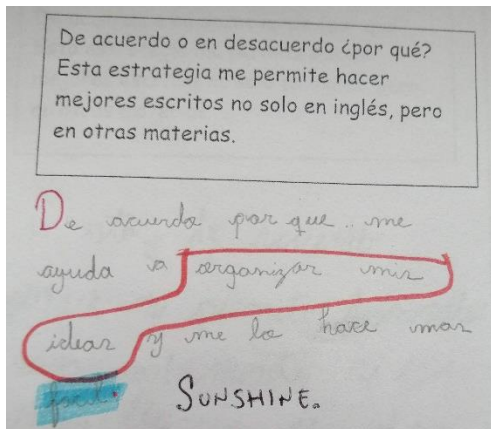 De acuerdo o en desacuerdo ¿por qué?
Esta estrategia me permite hacer
mejores escritos no solo en inglés, pero
en otras materias.
De acuerdo por que.. me
ayuda a organizar mis
ideas y me lo hace mas
facil.
SUNSHINE.